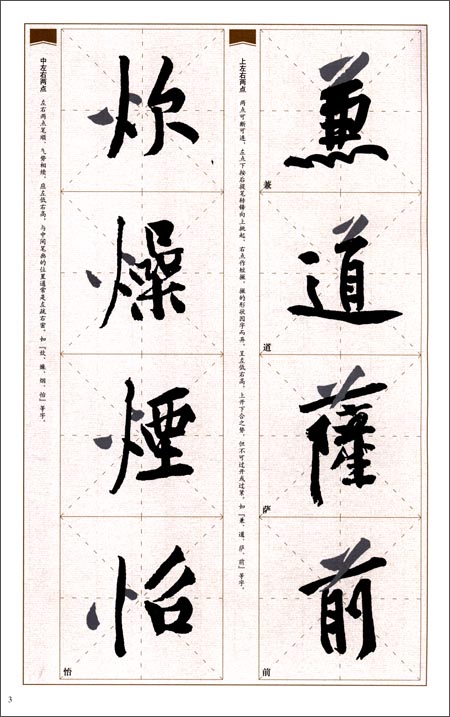 兼
兼
道
道
薩
萨
前
前
上左右两点
两点可断可连，左点下按后提笔转锋向上挑起，右点作短撇，撇的形状因字而异，呈左低右高，上开下合之势，但不可过开或过紧。如『兼、道、萨、前』等字。
炊
燥
煙
怡
怡
中左右两点
左右两点笔顺、气势相续，应左低右高，与中间笔画的位置通常是左疏右密。如『炊、燥、烟、怡』等字。
3